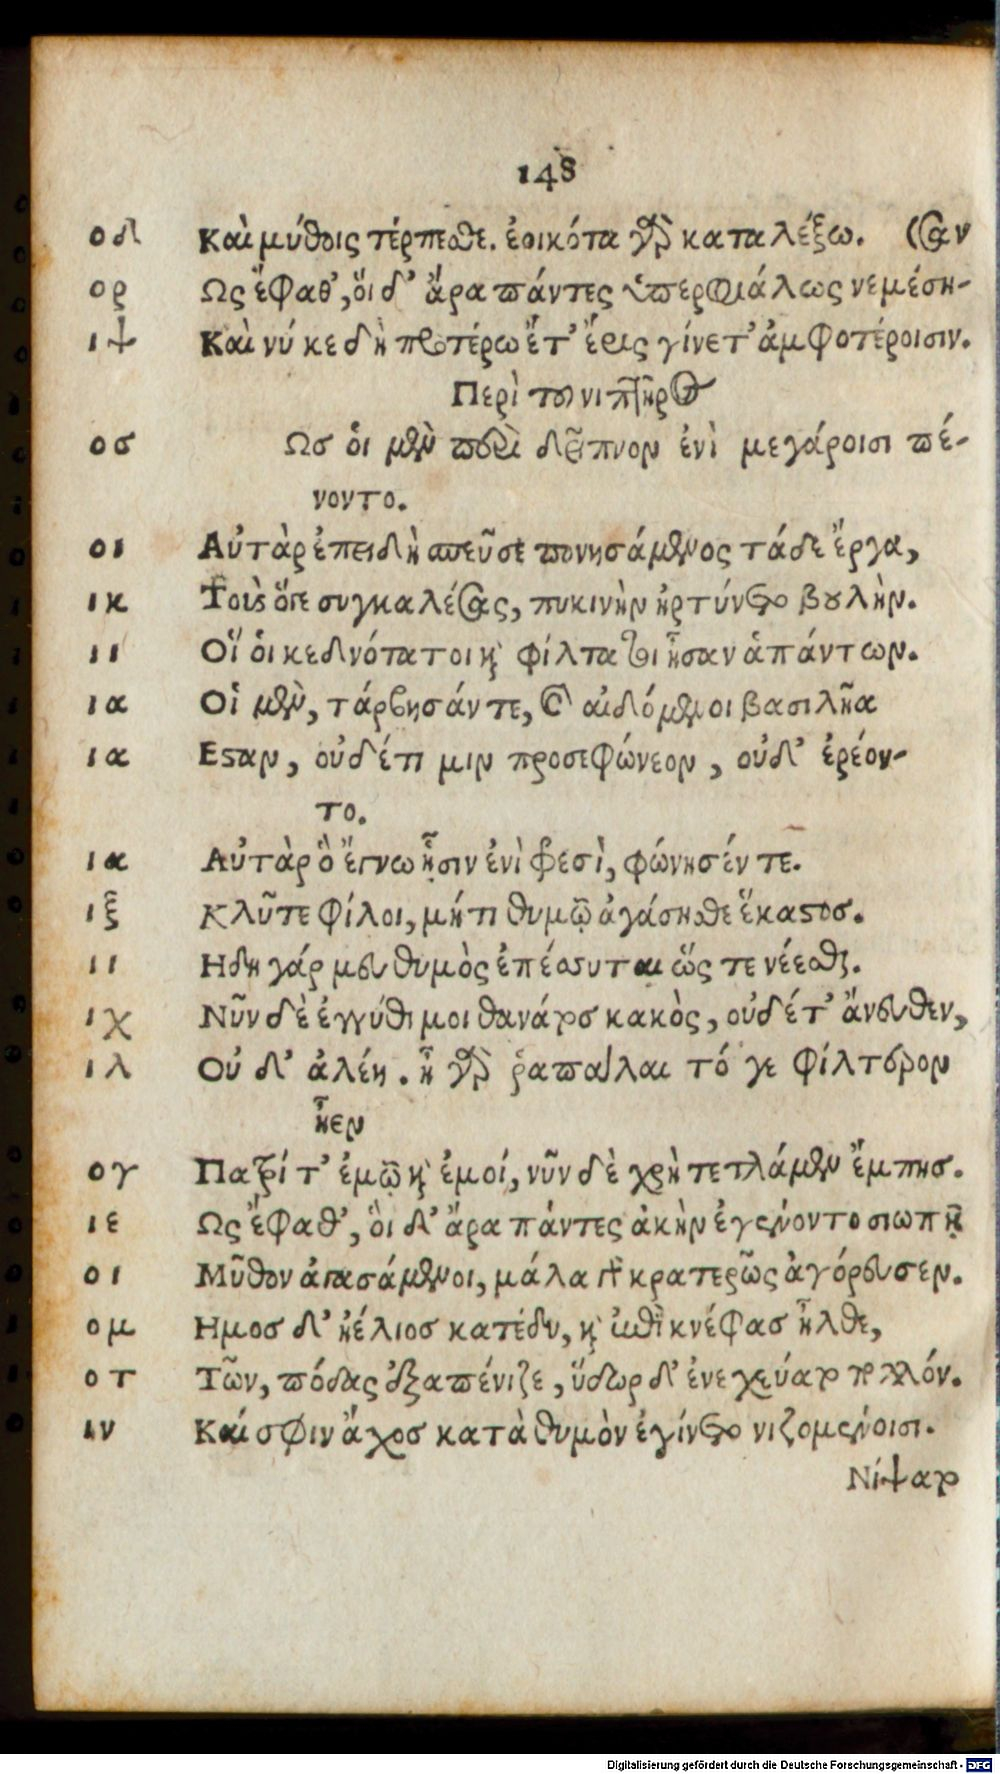 148
οδ Καὶ μύθοις τέρπεσθε. ἐοικότα γὰρ καταλέξω. (σαν
ορ Ως ἔφαθ', ὅι δ' ἄρα πάντες ὑπερφιάλως νεμέση-
ιψ Καὶ νύ κε δὴ προτέρω ἔτ' ἔρις γίνετ' ἀμφοτέροισιν.
Περὶ τοῦ νιπτῆρος
οσ Ωσ ὁι μὲν περὶ δεῖπνον ἐνὶ μεγάροισι πέ-
νοντο.
οι Αὐτὰρ ἐπειδὴ σπεῦσε πονησάμενος τάδε ἔργα,
ικ Τοὺς ὅγε συγκαλέσας, πυκινὴν ἠρτύνετο βουλὴν.
ιι Οἵ ὁι κεδνότατοι καὶ φίλτατοι ἦσαν ἁπάντων.
ια Οἱ μὲν, τάρβησάν τε, καὶ αἰδόμενοι βασιλῆα
ια Εσταν, οὐδέτι μιν προσεφώνεον, οὐδ' ἐρέον-
το.
ια Αὐτὰρ ὃ ἔγνω ᾗσιν ἐνὶ φρεσὶ, φώνησέν τε.
ιξ Κλῦτε φίλοι, μήτι θυμῷ ἀγάσησθε ἕκαστοσ.
ιι Ηδη γάρ μευ θυμὸς ἐπέσσυται ὥς τε νέεσθαι.
ιχ Νῦν δὲ ἐγγύθι μοι θανάτοσ κακὸς, οὐδέτ' ἄνευθεν,
ιλ Οὐ δ' ἀλέη. ἦ γὰρ ῥα πάλαι τό γε φίλτερον
ἦεν
ογ Πατρί τ' ἐμῷ καὶ ἐμοί, νῦν δὲ χρὴ τετλάμεν ἔμπησ.
ιε Ως ἔφαθ', ὃι δ' ἄρα πάντες ἀκὴν ἐγένοντο σιωπῇ
οι Μῦθον ἀγασάμενοι, μάλα γὰρ κρατερῶς ἀγόρευσεν.
ομ Ημοσ δ' ἠέλιοσ κατέδυ, καὶ ἐπὶ κνέφασ ἦλθε,
οτ Τῶν, πόδας ἐξαπένιζε, ὕδωρ δ' ἐνεχεύατο πολλόν.
ιν Καί σφιν ἄχοσ κατὰ θυμὸν ἐγίνετο νιζομένοισι.
Νίψατο
Digitalisierung gefördert durch die Deutsche Forschungsgemeinschaft - DFG